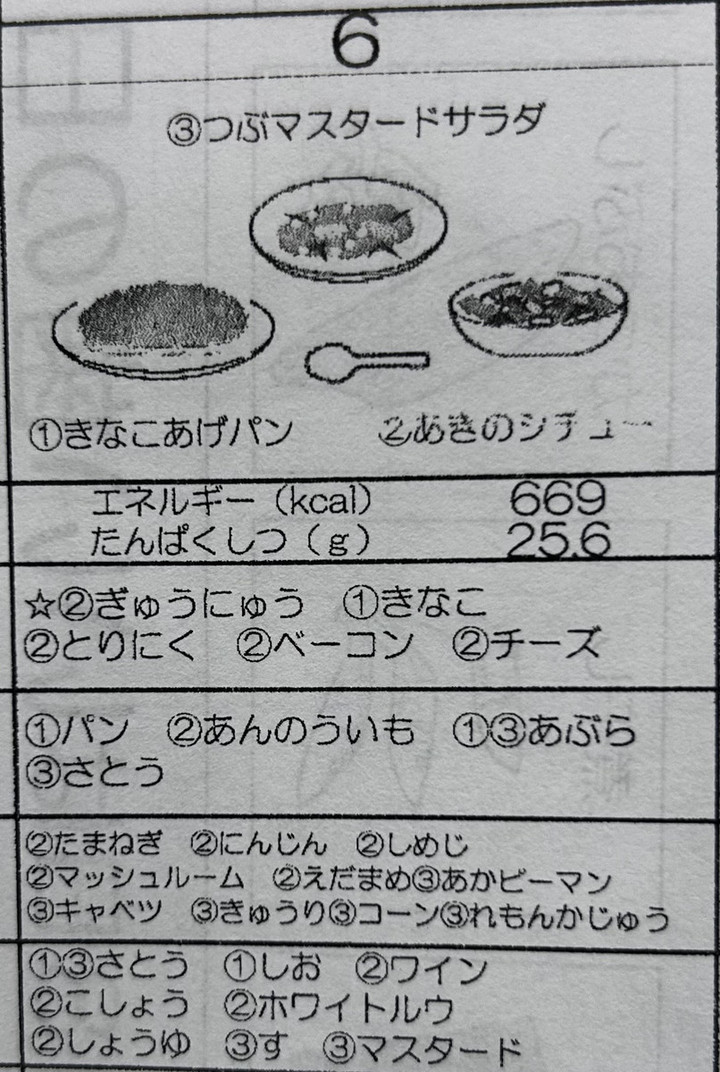 6
③つぶマスタードサラダ
①きなこあげパン ②あきのシチュー
エネルギー（kcal） 669
たんぱくしつ（g） 25.6
☆②ぎゅうにゅう ①きなこ
②とりにく ②ベーコン ②チーズ
①パン ②あんのういも ①③あぶら
③さとう
②たまねぎ ②にんじん ②しめじ
②マッシュルーム ②えだまめ③あかピーマン
③キャベツ ③きゅうり③コーン③れもんかじゅう
①③さとう ①しお ②ワイン
②こしょう ②ホワイトルウ
②しょうゆ ③す ③マスタード